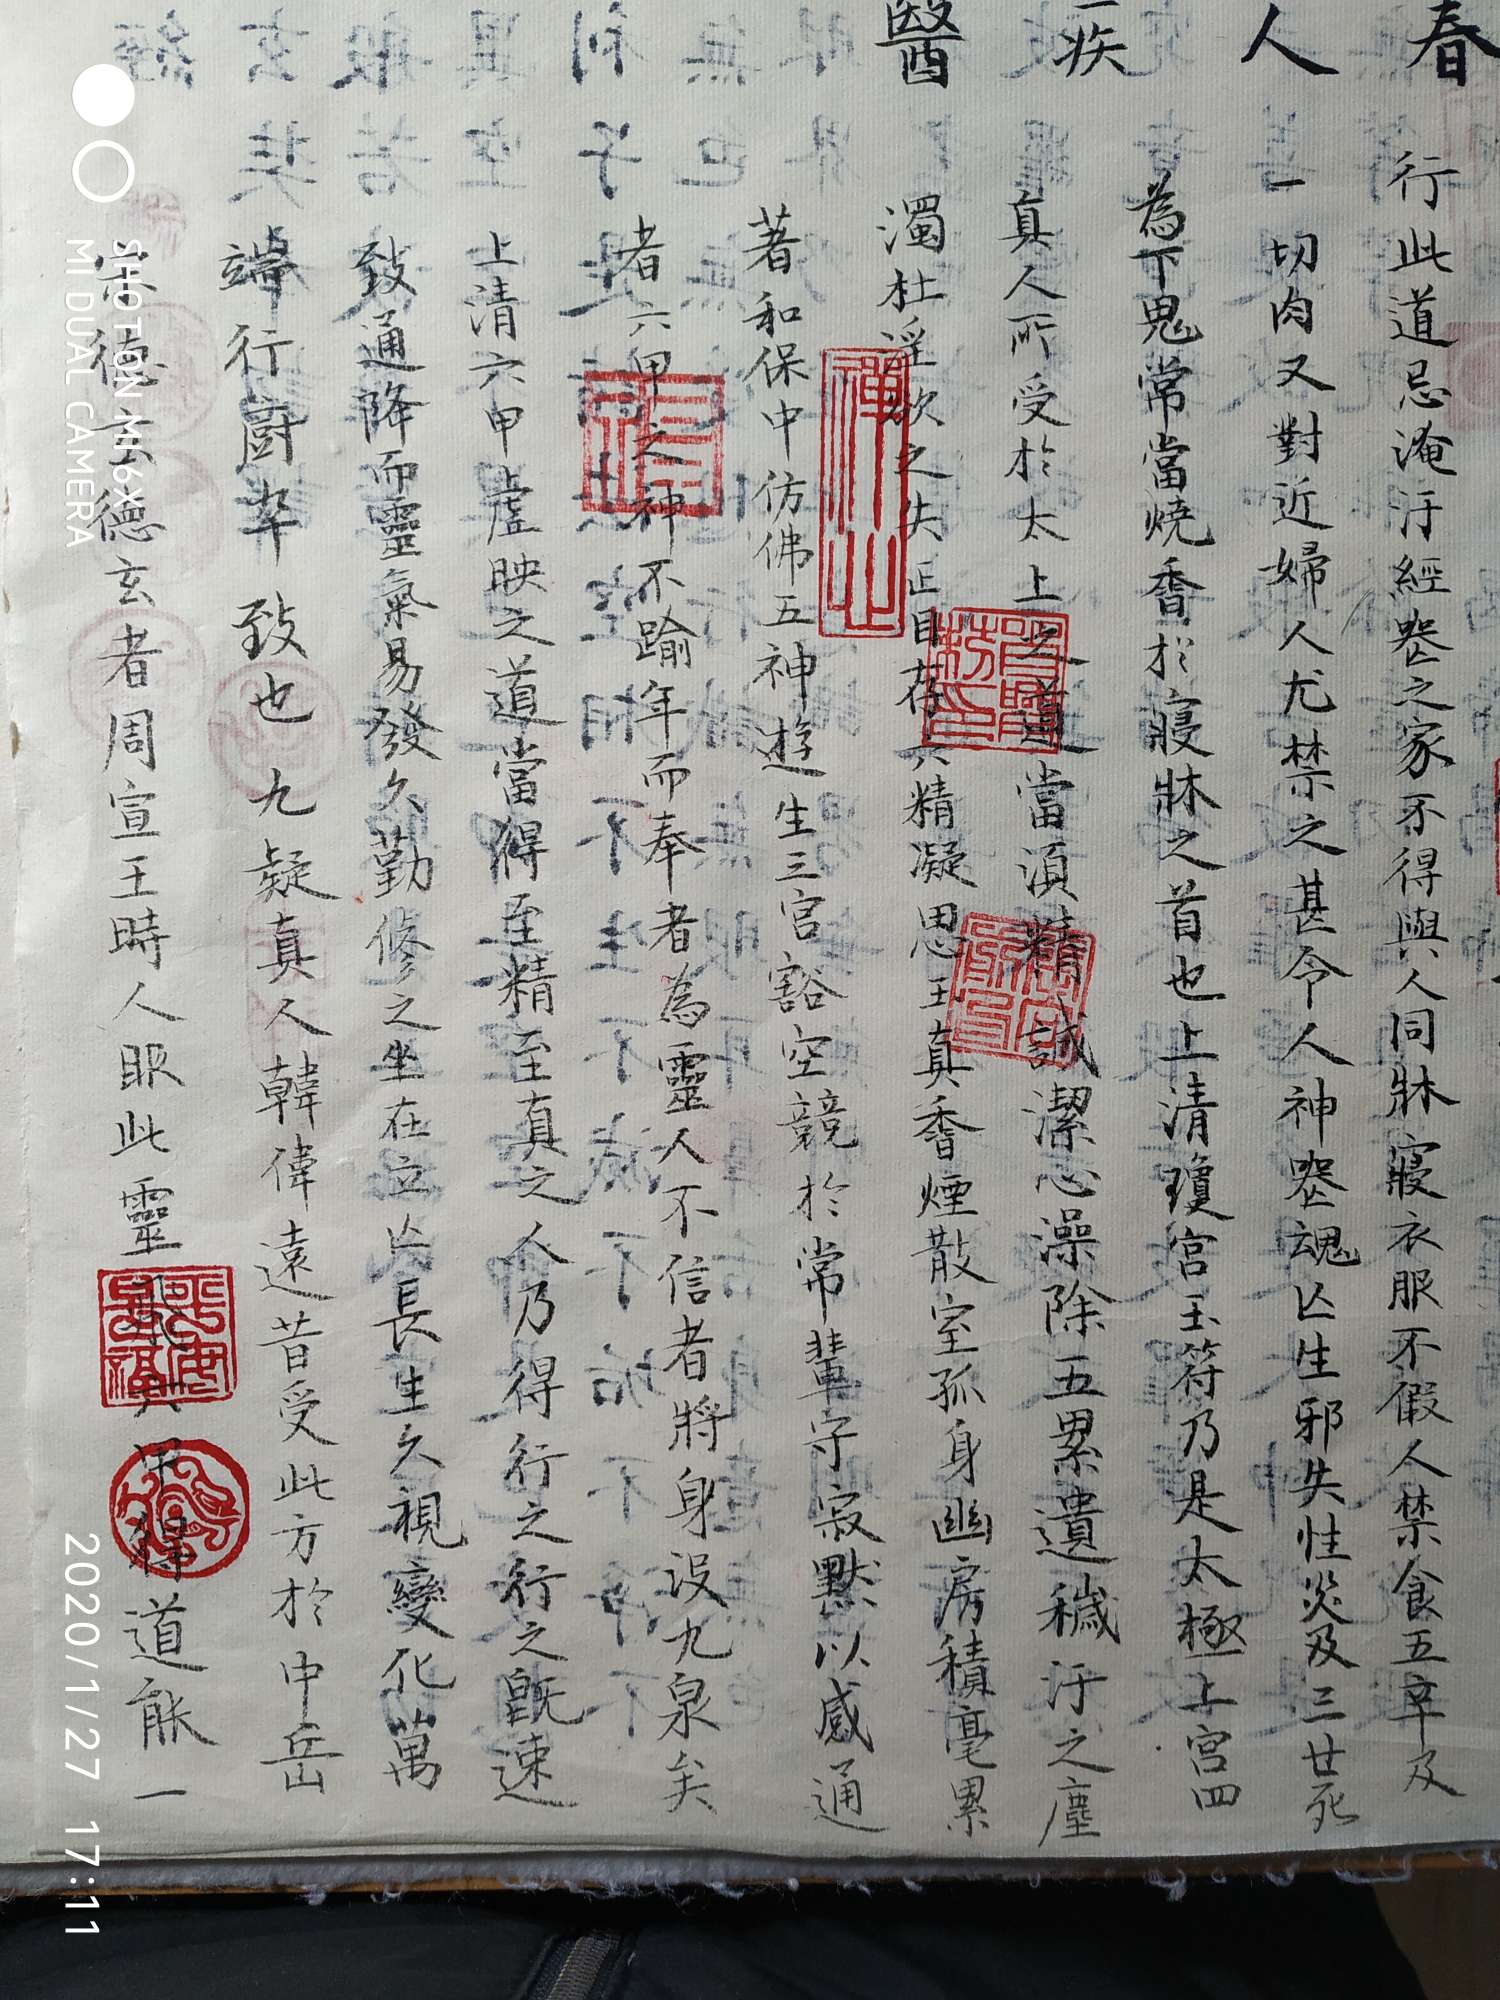 春
人
疾
醫
行此道忌淹汙經㘸之家不得與人同牀寢衣服不假人禁食五辛及
一切肉又對近婦人尤禁之甚令人神㘸魂亾生邪失性災及三世死
為下鬼常當燒香於寢牀之首也上清瓊宮玉符乃是太極上宮四
真人所受於太上之道當須精誠潔心澡除五累遺穢汙之塵
濁杜淫欲之失正目存六精凝思玉真香煙散室孤身幽房積毫累
著和保中仿佛五神遊生三宮豁空競於常輩守寂默以感通
者六甲之神不踰年而奉者為靈人不信者將身沒九泉矣
上清六甲虛映之道當得至精至真之人乃得行之行之既速
致通降而靈氣易發久勤修之坐在立亾長生久視變化萬
端行廚卒致也九疑真人韓偉遠昔受此方於中岳
宋德玄德玄者周宣王時人服此靈飛六甲得道能一
平安
是福
SHOT ON MI 6X
MI DUAL CAMERA
2020/1/27 17:11